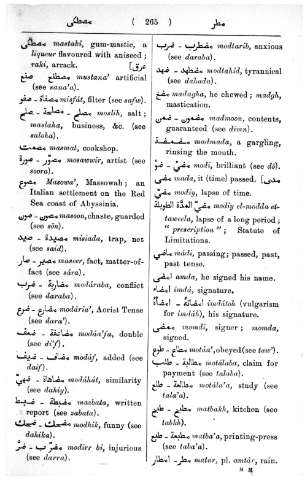 مصطكى ( 265 ) مطر
مصطكى mastaki, gum-mastic, a
liqueur flavoured with aniseed;
raki, arrack. [عرق
مصطنع - صنع mustana' artificial
(see sana'a).
مصفاة - صفو misfát, filter (see safw).
مصلح - ملح moslih, salt;
مصلحة - صلح maslaha, business, &c. (see
saloha).
مصمت masmat, cookshop.
مصور - صورة mosawwir, artist (see
soora).
مصوع Masowa', Massowah; an
Italian settlement on the Red
Sea coast of Abyssinia.
مصون - صون masoon, chaste, guarded
(see sôn).
مصيدة - صيد misiada, trap, not
(see said).
مصير - صار masеer, fact, matter-of-
fact (see sára).
مضاربة - ضرب modáraba, conflict
(see daraba).
مضارع - ضرع modária', Aorist Tense
(see dara').
مضاعفة - ضعف modáa'fa, double
(see di'f).
مضاف - ضيف modáf, added (see
daif).
مضاهاة - ضهي modáhát, similarity
(see dahiy).
مضبطة - ضبط mazbata, written
report (see zabata).
مضحك - ضحك modhik, funny (see
dahika).
مضر ب - ضر modirr bi, injurious
(see darra).
مضطرب - ضرب modtarib, anxious
(see daraba).
مضطهد - ضهد modtahid, tyrannical
(see dahada).
مضغ madagha, he chewed; madgh,
mastication.
مضمون - ضمن madmoon, contents,
guaranteed (see dimn).
مضمضة madmada, a gargling,
rinsing the mouth.
مضيء - ضوء modi, brilliant (see dô).
مضى mada, it (time) passed.
مضي modiy, lapse of time.
مضي المدة الطويلة modiy el-modda at-
taweela, lapse of a long period;
"prescription"; Statute of
Limitations.
ماضي mádi, passing; past, past,
past tense.
امضى amda, he signed his name.
امضاء imdá, signature.
امضاة - امضاء imdátoh (vulgarism
for imdáh), his signature.
ممضي momdi, signer; momda,
signed.
مطاع - طوع motáa', obeyed (see taw').
مطالبة - طلب motálaba, claim for
payment (see talaba).
مطالعة - طلع motála'a, study (see
tala'a).
مطبخ - طبخ matbakh, kitchen (see
tabkh).
مطبعة - طبع matba'a, printing-press
(see taba'a).
مطر - امطار matar, pl. amtár, rain.
M M